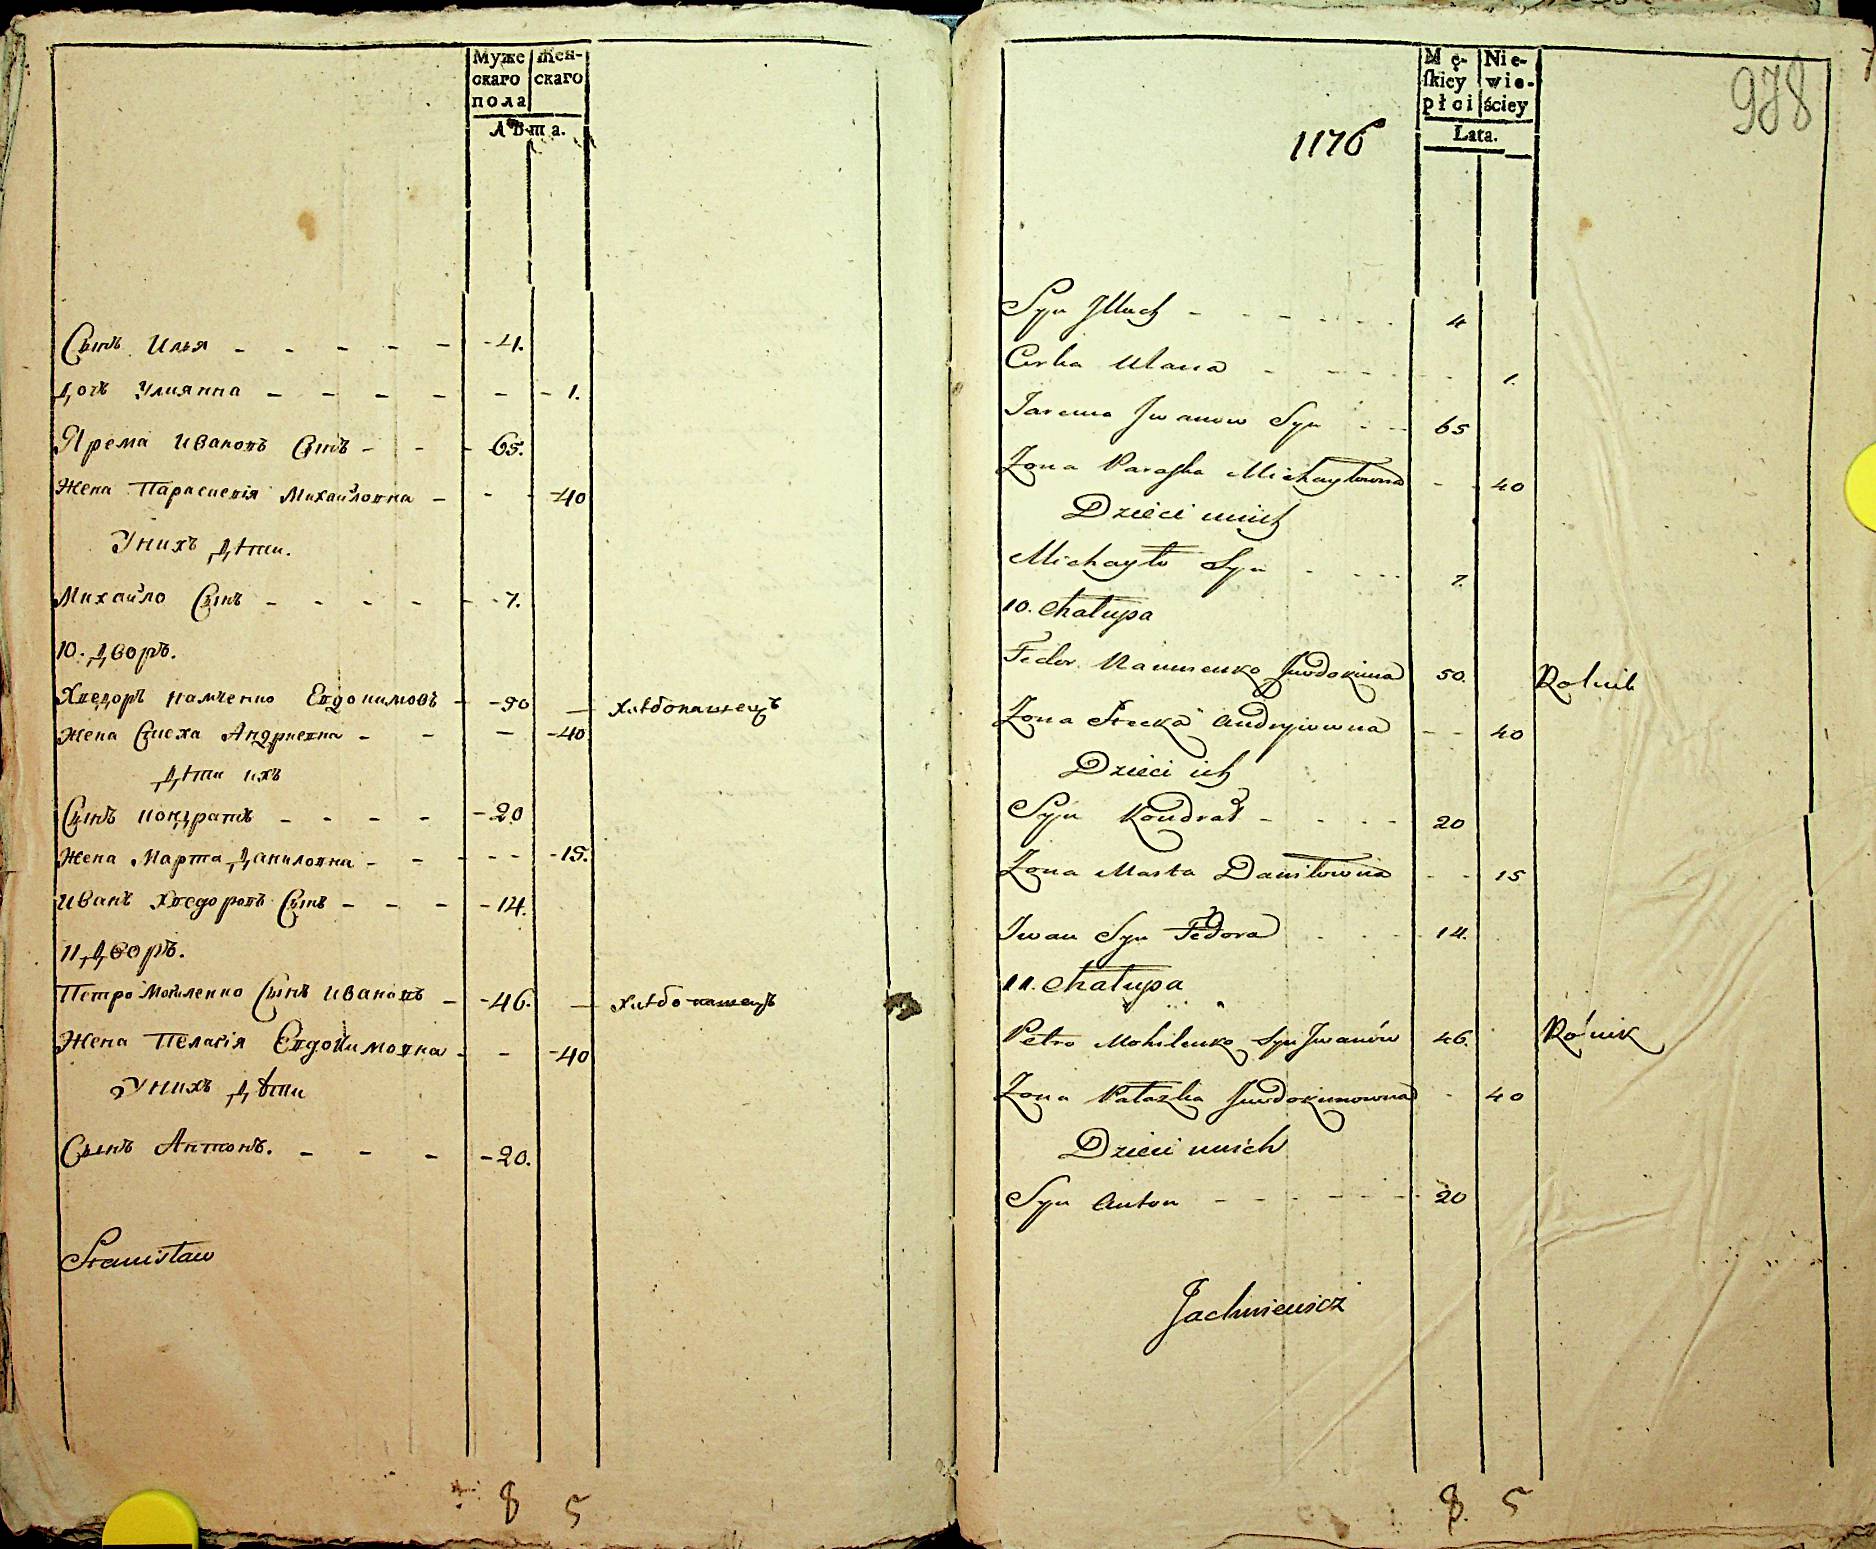 Муже Жен-
скаго скаго
пола
Лѣта.
Сынъ Илья - - - - - -4.
Дочь Улиянна - - - - - - 1.
Ярема Ивановъ Сынъ - - - 65.
Жена Параскевія Михайловна - - - -40
У нихъ Дѣти.
Михайло Сынъ - - - - - 7.
10. Дворъ.
Хведоръ Евдокимовъ - -50 — хлѣбопашецъ
Жена Стеха Андриевна - - — -40
Дѣти ихъ
Сынъ Кондратъ - - - - -20
Жена Марта Даниловна - - - - - -15.
Иванъ Хведоровъ Сынъ - - - -14.
11 Дворъ.
Петро Могиленко Сынъ Ивановъ - -46. — хлѣбопашецъ
Жена Пелагія Евдокимовна - - -40
У нихъ Дѣти
Сынъ Антонъ. - - - -20.
Stanisław
8 5
Mę- Nie-
ſkiey wie-
płci ściey
Lata.
978
1176
Syn Illuch - - - - - - 4
Corka Ulana - - - - - 1.
Jarema Jwanow Syn - - - 65
Żona Paraska Michayłowna - - 40
Dzieci u nich
Michayło Syn - - - - 7.
10. Chałupa
Fedor Juwdokima 50. Rolnik
Żona Stecka Andryiowna - - 40
Dzieci ich
Syn Kondrat - - - - 20
Żona Marta Daniłowna - - 15
Jwan Syn Fedora - - - 14.
11. Chałupa
Petro Mohilenko Syn Jwanów 46. Rolnik
Żona Pałazka Juwdokimowna - 40
Dzieci u nich
Syn Anton - - - - - - 20
Jachniewicz
8. 5